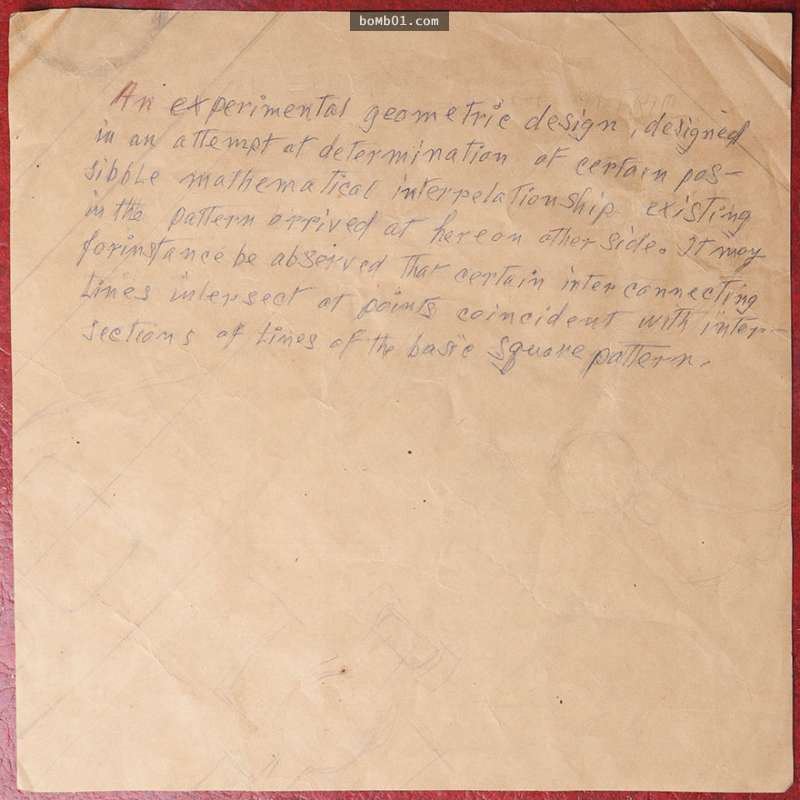 boMb01.com
An experimental geometric design, designed
in an attempt at determination of certain pos-
sibble mathematical interrelationship existing
in the pattern arrived at hereon other side. It may
forinstance be observed that certain inter connecting
lines intersect at points coincident with inter-
sections of lines of the basic square pattern.